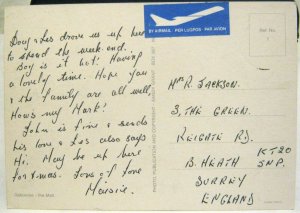 Doug & Les drove us up here
to spend the week-end.
Boy is it hot! Having
a lovely time. Hope you
& the family are all well,
Hows my Mark?
John is fine & sends
his love & Les also says
Hi. May be up here
for Xmas. Tons of love
Maisie.
BY AIRMAIL PER LUGPOS PAR AVION
Mrs R. Jackson.
3, THE GREEN.
REIGATE RD
B. HEATH KT20
5NP.
SURREY
ENGLAND